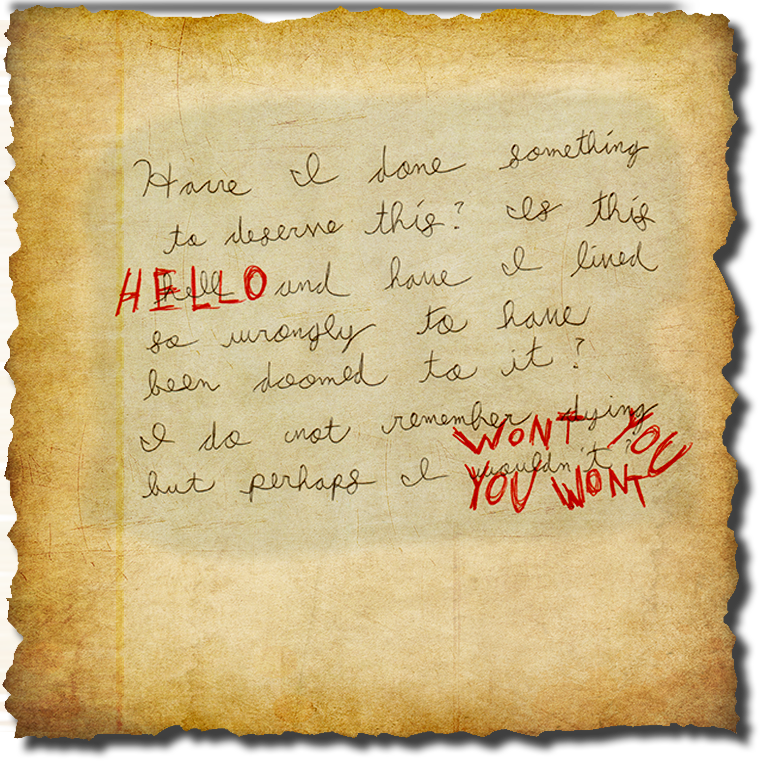 Have I done something
to deserve this? Is this
HELLO hell and have I lived
so wrongly to have
been doomed to it?
I do not remember dying
WONT YOU
but perhaps I wouldn't?
YOU WONT